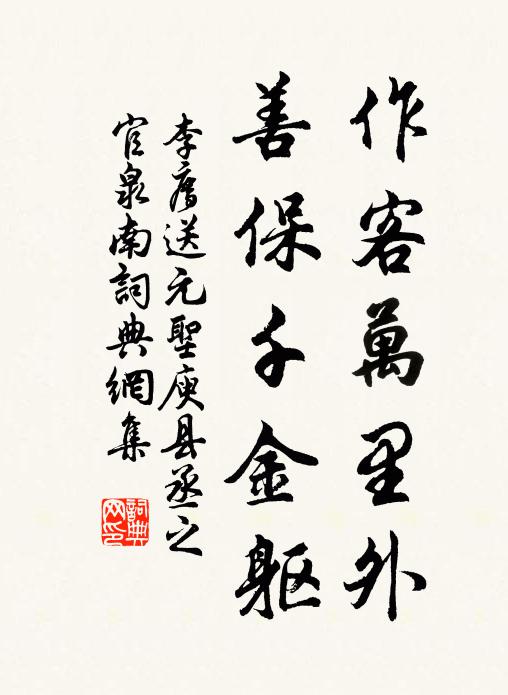 作客萬里外
善保千金軀
李廌送元聖庾县丞之
官泉南詞典網集
詞典网印